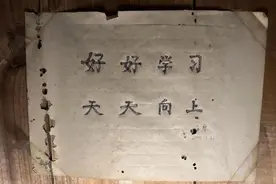 好好学习
天天向上